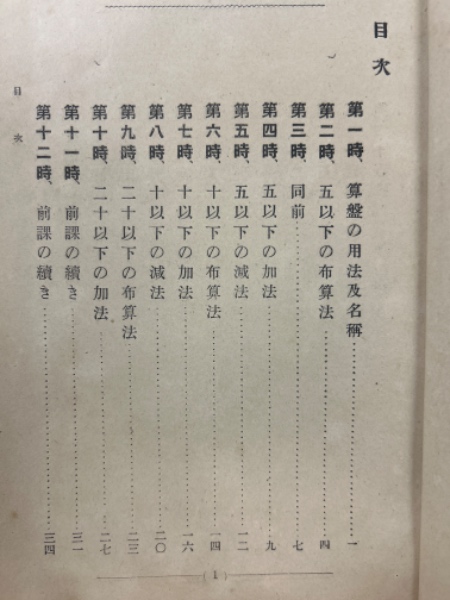 目次
第一時、算盤の用法及名稱…………一
第二時、五以下の布算法…………四
第三時、同前…………七
第四時、五以下の加法…………九
第五時、五以下の減法…………一二
第六時、十以下の布算法…………一四
第七時、十以下の加法…………一六
第八時、十以下の減法…………二〇
第九時、二十以下の布算法…………二三
第十時、二十以下の加法…………二七
第十一時、前課の續き…………三一
第十二時、前課の續き…………三四
目次
(1)